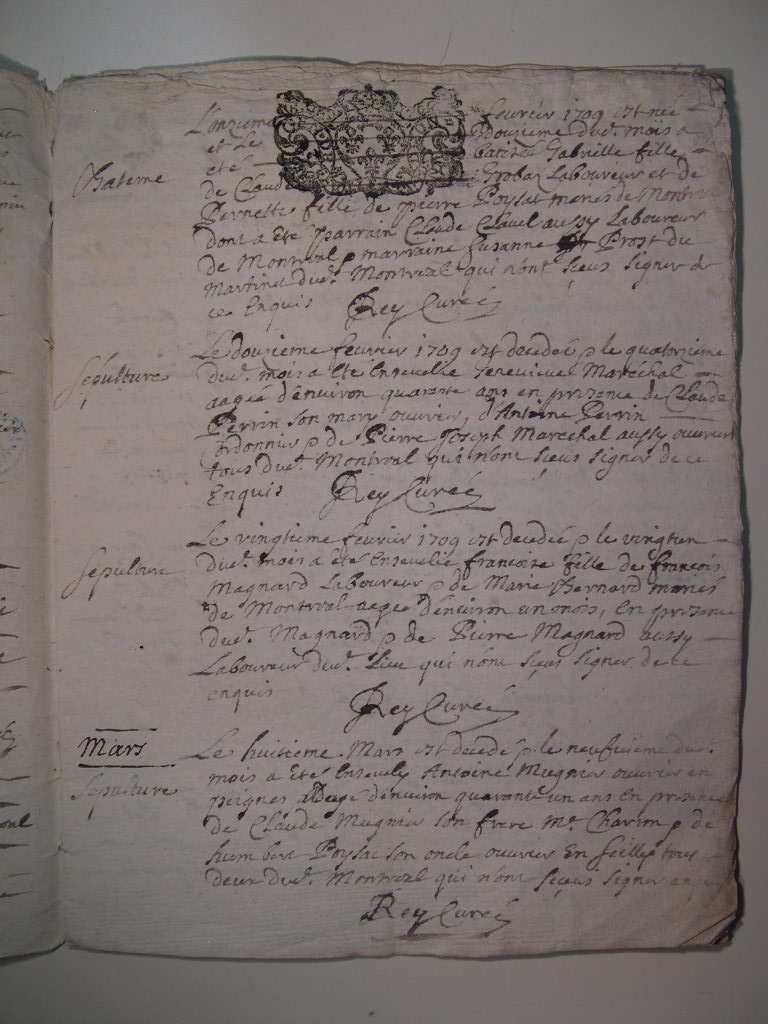 L'onzieme feurier 1709 est née
et Le douzieme dud. mois a
eté batisée Gabrielle fille
Bateme
de Claude Grobaz Laboureur et de
Pernette fille de pierre Poysat mariés de Montreal
dont a eté parrain Claude Clavel aussy Laboureur
de Montreal & marraine Suzanne Prost du
Martinet dud. Montreal qui n'ont sceus signer de
ce Enquis Rey Curé
Le douzieme feurier 1709 est decedée & le quatorzieme
Sepulture
dud. mois a eté Ensevelie Genevieve Marechal
aagée d'environ quarante ans en presence de Claude
Perrin son mary ouvrier, d'Antoine Perrin
Cordonnier & de Pierre Joseph Marechal aussy ouvrier
tous dud. Montreal qui n'ont sceus signer de ce
Enquis Rey Curé
Le vingtieme feurier 1709 est decedée & le vingt un
Sepulture
dud. mois a eté Ensevelie francoise fille de francois
Magnard Laboureur & de Marie Bernard mariés
de Montreal aagée d'environ un mois, En presence
dud. Magnard & de Pierre Magnard aussy
Laboureur dud. Lieu qui n'ont sceus signer de ce
enquis
Rey Curé
Mars
Le huitieme Mars est decedé & le neufuieme dud.
Sepulture
mois a eté Ensevely Antoine Mugnier ouvrier en
peignes aagé d'environ quarante un ans En presence
de Claude Mugnier son frere Me. & de
humbert Poysat son oncle ouvrier En tous
deux dud. Montreal qui n'ont sceus signer
Rey Curé